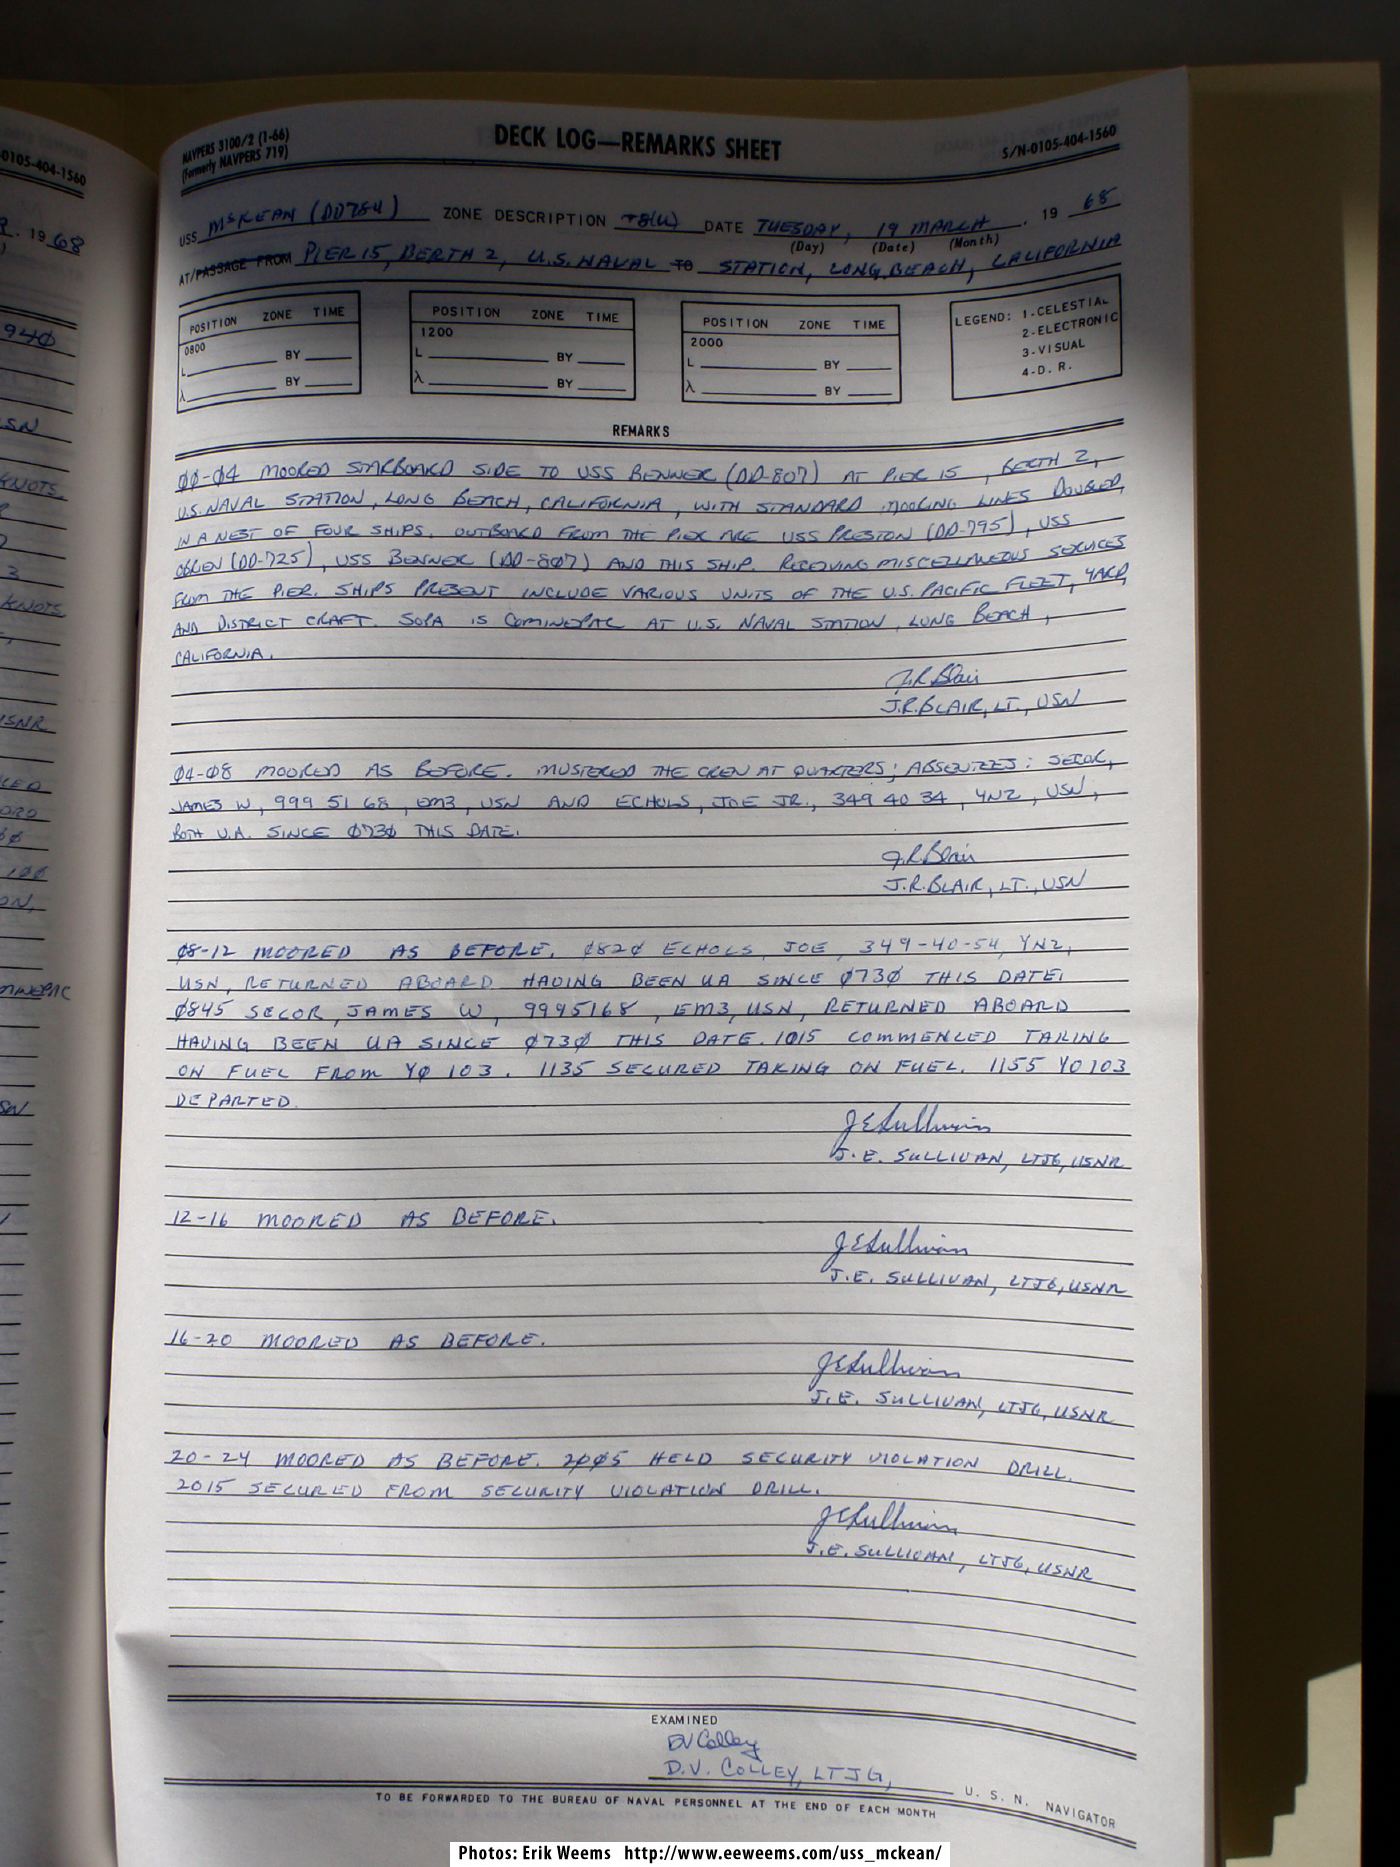 0105-404-1560
19 68
940
SN
KNOTS,
3
KNOTS
USNR
100
ON,
NAVPERS 3100/2 (1-66)
(Formerly NAVPERS 719)
DECK LOG—REMARKS SHEET
S/N-0105-404-1560
USS McKEAN (DD784) ZONE DESCRIPTION +8(U) DATE TUESDAY, 19 MARCH . 19 68
(Day) (Date) (Month)
AT/PASSAGE FROM PIER 15, BERTH 2, U.S. NAVAL TO STATION, LONG BEACH, CALIFORNIA
POSITION ZONE TIME
0800
L BY
λ BY
POSITION ZONE TIME
1200
L BY
λ BY
POSITION ZONE TIME
2000
L BY
λ BY
LEGEND: 1-CELESTIAL
2-ELECTRONIC
3-VISUAL
4-D. R.
REMARKS
00-04 MOORED STARBOARD SIDE TO USS BENNER (DD-807) AT PIER 15, BERTH 2,
U.S. NAVAL STATION, LONG BEACH, CALIFORNIA, WITH STANDARD MOORING LINES DOUBLED,
IN A NEST OF FOUR SHIPS. OUTBOARD FROM THE PIER ARE USS PRESTON (DD-795), USS
OBRIEN (DD-725), USS BENNER (DD-807) AND THIS SHIP. RECEIVING MISCELLANEOUS SERVICES
FROM THE PIER. SHIPS PRESENT INCLUDE VARIOUS UNITS OF THE U.S. PACIFIC FLEET, YARD,
AND DISTRICT CRAFT. SOPA IS COMINEPAC AT U.S. NAVAL STATION, LONG BEACH,
CALIFORNIA.
J.R. Blair
J.R. BLAIR, LT., USN
04-08 MOORED AS BEFORE. MUSTERED THE CREW AT QUARTERS; ABSENTEES: SECOR,
JAMES W, 999 51 68, EM3, USN AND ECHOLS, JOE JR., 349 40 34, YN2, USN,
BOTH U.A. SINCE 0730 THIS DATE.
J.R. Blair
J.R. BLAIR, LT., USN
08-12 MOORED AS BEFORE. 0820 ECHOLS, JOE, 349-40-54, YN2,
USN, RETURNED ABOARD HAVING BEEN UA SINCE 0730 THIS DATE.
0845 SECOR, JAMES W, 9995168, EM3, USN, RETURNED ABOARD
HAVING BEEN UA SINCE 0730 THIS DATE. 1015 COMMENCED TAKING
ON FUEL FROM YO 103. 1135 SECURED TAKING ON FUEL. 1155 YO103
DEPARTED.
J E Sullivan
J. E. SULLIVAN, LTJG, USNR
12-16 MOORED AS BEFORE.
J E Sullivan
J.E. SULLIVAN, LTJG, USNR
16-20 MOORED AS BEFORE.
J E Sullivan
J.E. SULLIVAN, LTJG, USNR
20-24 MOORED AS BEFORE. 2005 HELD SECURITY VIOLATION DRILL.
2015 SECURED FROM SECURITY VIOLATION DRILL.
J E Sullivan
J.E. SULLIVAN, LTJG, USNR
EXAMINED
DV Colley
D.V. COLLEY, LTJG, U. S. N. NAVIGATOR
TO BE FORWARDED TO THE BUREAU OF NAVAL PERSONNEL AT THE END OF EACH MONTH
Photos: Erik Weems http://www.eeweems.com/uss_mckean/